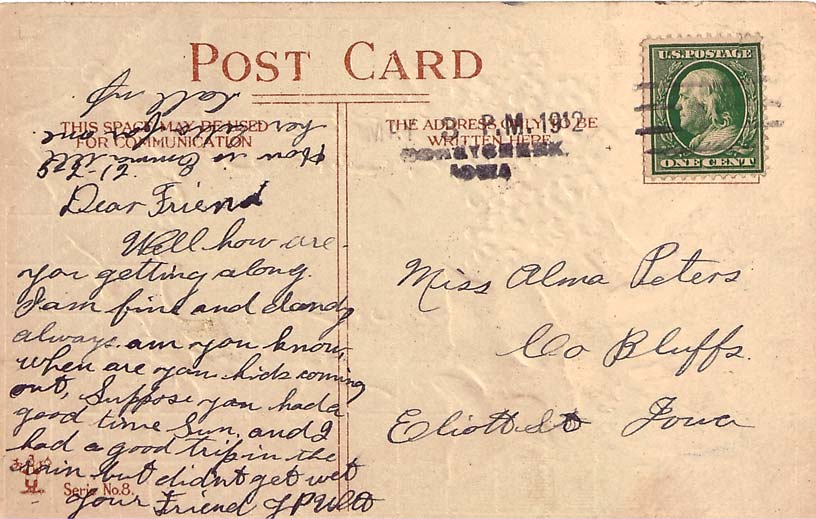 POST CARD
THIS SPACE MAY BE USED
FOR COMMUNICATION
THE ADDRESS ONLY TO BE
WRITTEN HERE
3 P.M. 1912
IOWA
U.S. POSTAGE
ONE CENT
Dear Friend
Well how are
you getting along.
I am fine and dandy
always am you know,
when are you kids coming
out, Suppose you had a
good time Sun, and I
had a good trip in the
rain but didn't get wet
your Friend
Serie No. 8.
How is Emma tell
her
Miss Alma Peters
Co Bluffs.
Eliott St Iowa